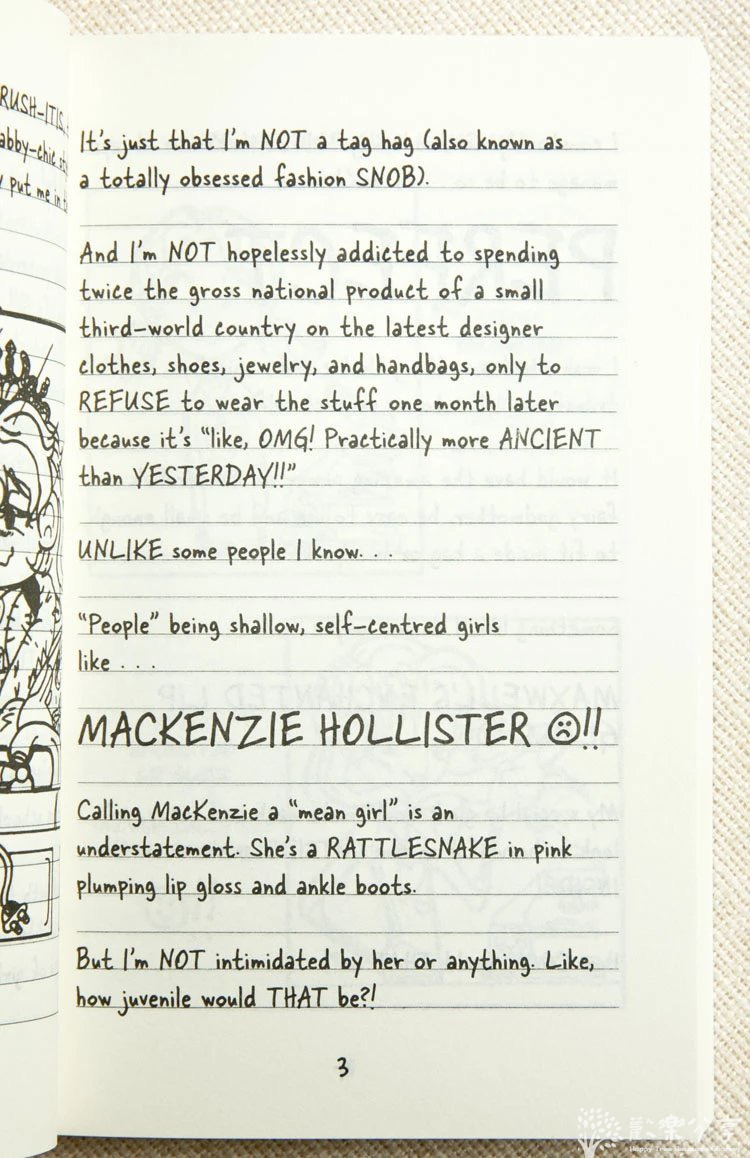 RUSH-ITIS,
abby-chic
put me in
It's just that I'm NOT a tag hag (also known as
a totally obsessed fashion SNOB).
And I'm NOT hopelessly addicted to spending
twice the gross national product of a small
third-world country on the latest designer
clothes, shoes, jewelry, and handbags, only to
REFUSE to wear the stuff one month later
because it's “like, OMG! Practically more ANCIENT
than YESTERDAY!!”
UNLIKE some people I know. . .
“People” being shallow, self-centred girls
like . . .
MACKENZIE HOLLISTER ☹!!
Calling MacKenzie a “mean girl” is an
understatement. She's a RATTLESNAKE in pink
plumping lip gloss and ankle boots.
But I'm NOT intimidated by her or anything. Like,
how juvenile would THAT be?!
3